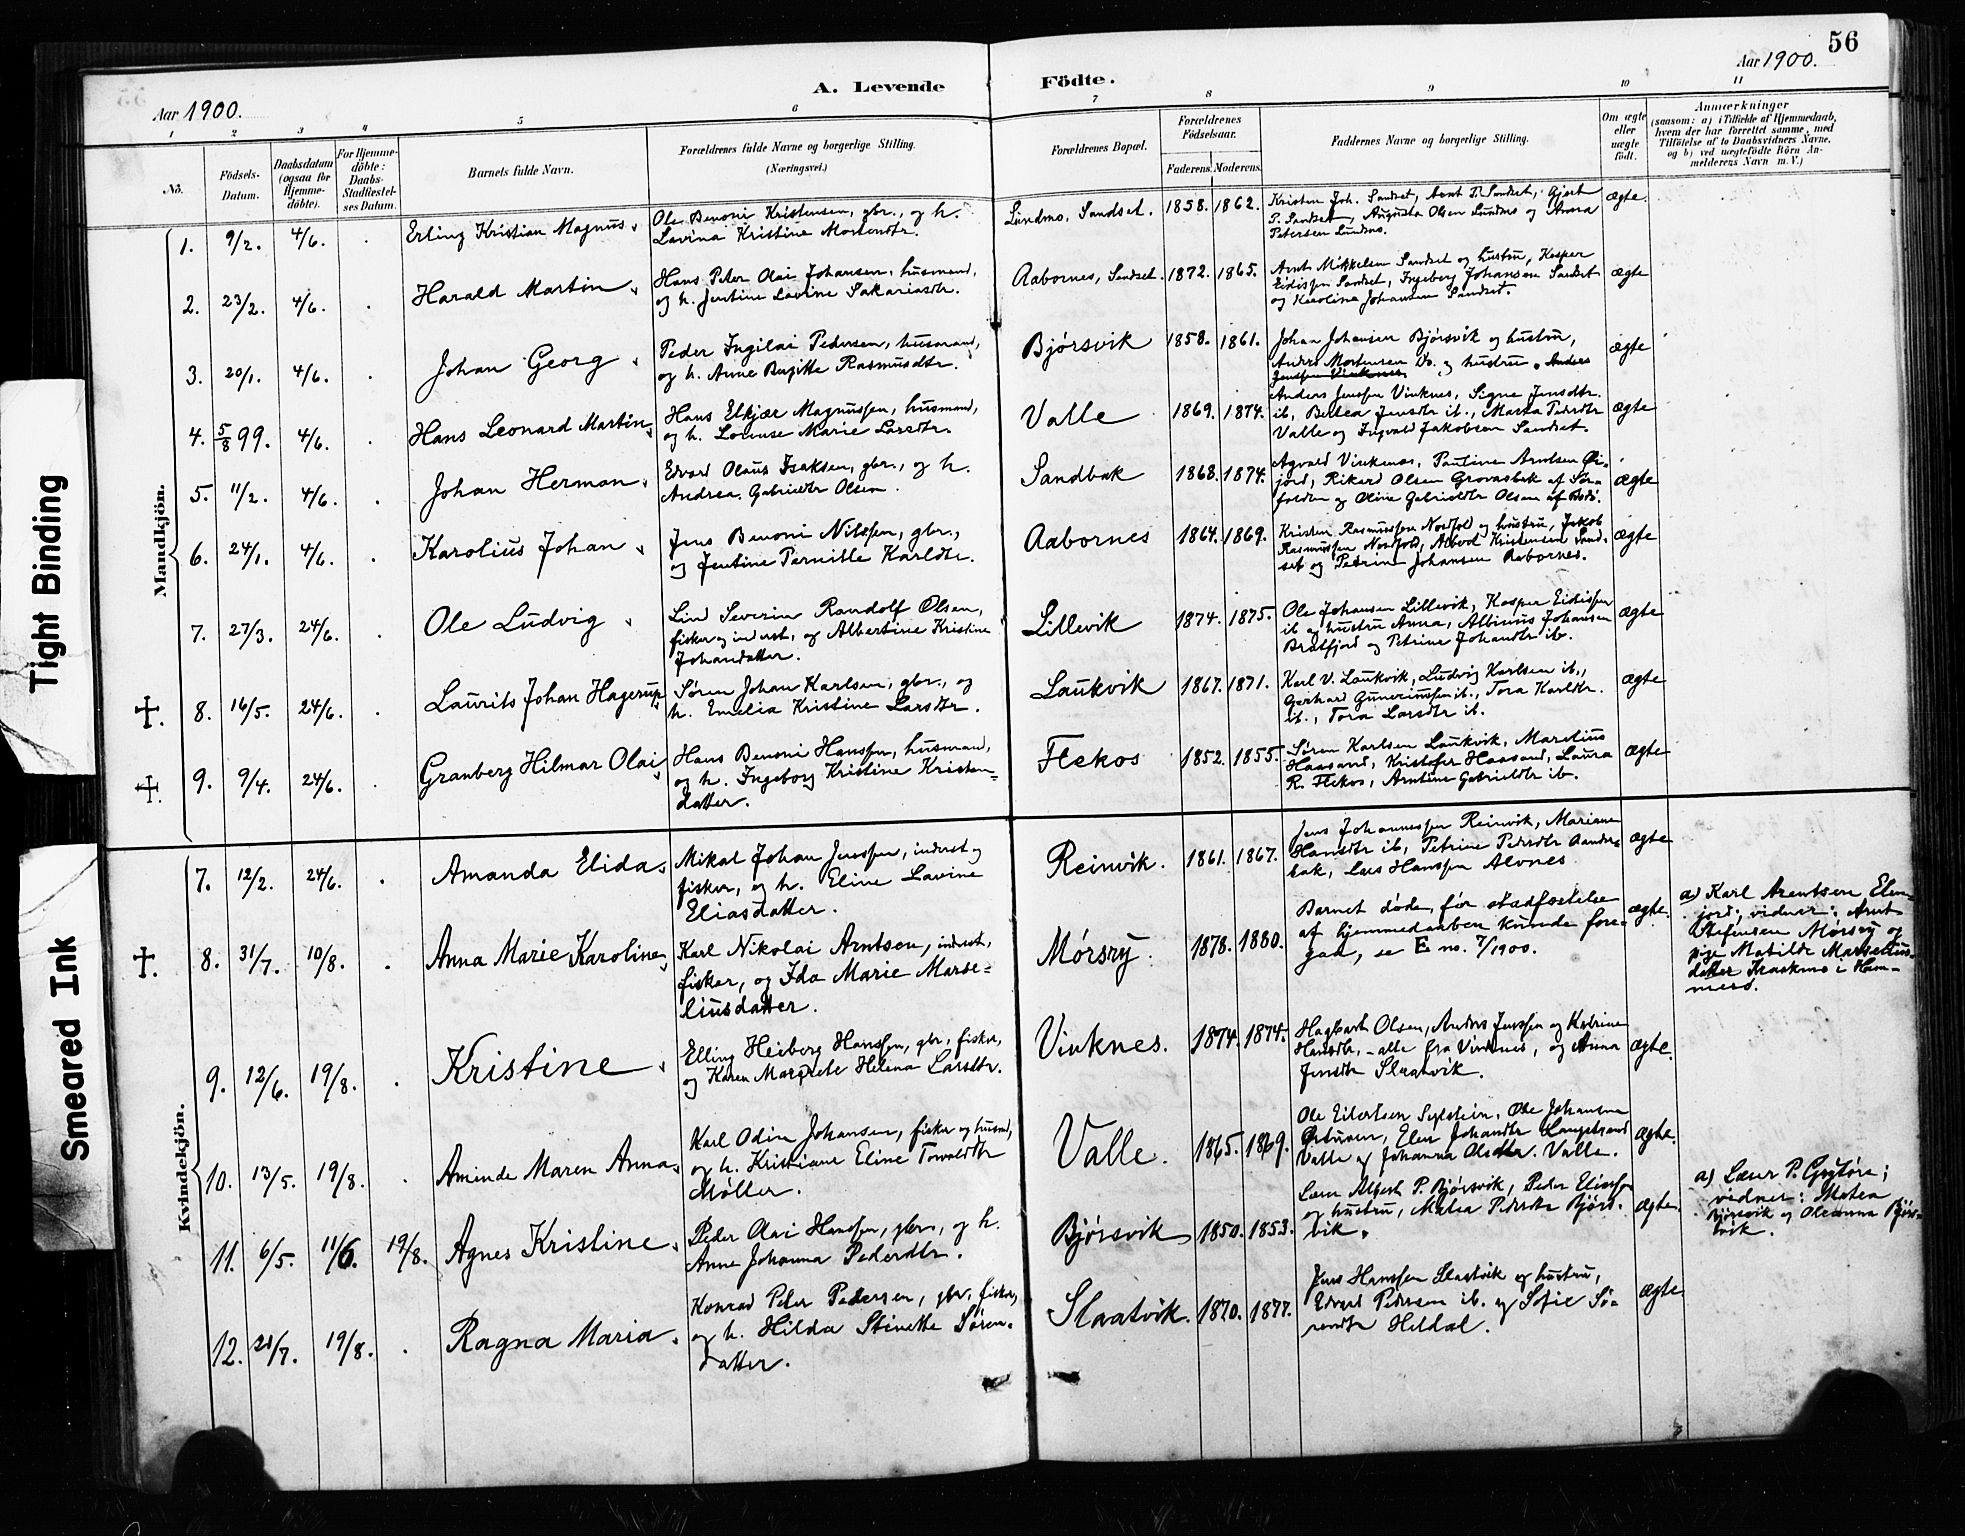 56
Aar 1900.
A. Levende Födte.
Aar 1900.
1 2 3 4 5 6 7 8 9 10 11
No.
Födsels-Datum.
Daabsdatum (ogsaa for Hjemme-döbte).
For Hjemme-döbte: Daabs-Stadfæstel-ses Datum.
Barnets fulde Navn.
Forældrenes fulde Navne og borgerlige Stilling.
(Næringsvei.)
Forældrenes Bopæl.
Forældrenes Födselsaar.
Faderens. Moderens.
Faddernes Navne og borgerlige Stilling.
Om ægte eller uægte födt.
Anmærkninger
(saasom: a) i Tilfælde af Hjemmedaab,
hvem der har forrettet samme, med
Tilföielse af to Daabsvidners Navne,
og b) ved uægtefödte Börn An-
melderens Navn m. V.)
Mandkjön.
1. 9/2. 4/6. Erling Kristian Magnus.
Ole Benoni Kristensen, gbr., og h.
Lavina Kristine Mortensdtr.
Lundmo, Sandset. 1858. 1862.
Kristen Joh. Sandset, Arnt P. Sandset, Gjert
P. Sandset, Augusta Olsen Lundmo og Anna
Petersen Lundmo.
ægte.
2. 23/2. 4/6. Harald Martin.
Hans Peter Olai Johansen, husmand,
og h. Jentine Lavine Sakariasdtr.
Aabornes, Sandset. 1872. 1865.
Arnt Mikkelsen Sandset og hustru, Kasper
Eidissen Sandset, Ingeborg Johansen Sandset
og Karoline Johansen Sandset.
ægte
3. 20/1. 4/6. Johan Georg.
Peder Ingilai Pedersen, husmand,
og h. Anne Birgitte Rasmusdtr.
Bjørsvik 1858. 1861.
Johan Johansen Bjørsvik og hustru,
Anders Mortensen Do. og hustru. Anders
Jenssen Vinknes.
ægte
4. 5/8 99. 4/6. Hans Leonard Martin.
Hans Elkjær Magnussen, husmand,
og h. Lorense Marie Larsdtr.
Valle 1869. 1874.
Anders Jenssen Vinknes, Signe Jensdtr.
ib, Betea Jensdtr ib., Marta Pedersdtr
Valle og Ingvald Jakobsen Sandset.
ægte
5. 11/2. 4/6. Johan Herman.
Edvard Olaus Isaksen, gbr., og h.
Andrea Gabrielsdtr Olsen.
Sandbak 1868. 1874.
Agvald Vinkenes, Pauline Arntsen Øi-
jord, Rikard Olsen Grovasbak af Sør-
folden og Oline Gabrielsdtr Olsen af Bodø.
ægte
6. 24/1. 4/6. Karolius Johan.
Jens Benoni Nilssen, gbr.,
og Jentine Pernille Karlsdtr.
Aabornes 1864. 1869.
Kristen Rasmussen Nordfold og hustru, Jakob
Rasmussen Nordfold, Albert Kristensen Sand-
set og Petrine Johansen Aabornes.
ægte
7. 27/3. 24/6. Ole Ludvig.
Lind Severin Randolf Olsen,
fisker og inderst, og Albertine Kristine
Johansdatter.
Lillevik 1874. 1875.
Ole Johansen Lillevik, Kasper Eidissen
ib og hustru Anna, Albinius Johansen
Bratfjord og Petrine Johansdtr ib.
ægte
8. 16/5. 24/6. Laurits Johan Hagerup.
Søren Johan Karlsen, gbr., og
h. Emelia Kristine Larsdtr.
Laukvik 1867. 1871.
Karl V. Laukvik, Ludvig Karlsen ib.,
Gerhard Guneriussen ib., Tora Karlsdtr.
ib., Tora Larsdtr ib.
ægte
9. 9/4. 24/6. Granberg Hilmar Olai.
Hans Benoni Hanssen, husmand,
og h. Ingeborg Kristine Kristen-
datter.
Flekos 1852. 1855.
Søren Karlsen Laukvik, Marelius
Haasand, Kristofer Haasand, Laura
R. Flekos, Arntine Gabrielsdtr ib.
ægte
Kvindekjön.
7. 12/2. 24/6. Amanda Elida.
Mikal Johan Jenssen, inderst og
fisker, og h. Eline Lavine
Eliasdatter.
Reinvik. 1861. 1867.
Jens Johannessen Reinvik, Mariane
Hansdtr ib, Petrine Pedersdtr Aander-
bak, Lars Hanssen Alvnes
ægte
8. 31/7. 10/8. Anna Marie Karoline.
Karl Nikolai Arntsen, inderst,
fisker, og Ida Marie Marse-
liusdatter.
Mørsry. 1878. 1880.
Barnet døde, før stadfæstelse
af hjemmedaaben kunde fore-
gaa, se E no. 7/1900.
ægte.
a) Karl Arentsen Elven-
jord; vidner: Arnt
Steffensen Mørsry og
pige Matilde Marselius-
datter Kraakmo i Ham-
merø.
9. 12/6. 19/8. Kristine.
Elling Heiberg Hanssen, gbr, fisker,
og Karen Margrete Helena Larsdtr.
Vinknes. 1874. 1874.
Hagbart Olsen, Anders Jenssen og Katrine
Hansdtr, - alle fra Vinknes, og Anna
Jensdtr Slaatvik.
ægte.
10. 13/5. 19/8. Aminde Maren Anna.
Karl Odin Johansen, fisker og husmd,
og h. Kristiane Eline Torvaldtr
Møller.
Valle. 1865. 1869.
Ole Eilertsen Sylstein, Ole Johansen
Elen Johansdtr Langstrand
Valle og Johanna Olsdtr. Valle.
ægte.
11. 6/5. 11/6. 19/8. Agnes Kristine.
Peder Olai Hanssen, gbr., og h.
Anne Johanna Pedersdtr.
Bjørsvik 1850. 1853.
Laur Albert P. Bjørsvik, Peder Eliassen
og hustru, Matea Pedersdtr Bjørs-
vik.
ægte.
a) Laur P. Grytøre;
vidner: Matea
Bjørsvik og Oleanna Bjørs-
vik.
12. 21/7. 19/8. Ragna Maria.
Konrad Peter Pedersen, gbr, fisker,
og h. Hilda Stinette Søren-
datter.
Slaatvik. 1870. 1877.
Jens Hanssen Slaatvik og hustru,
Edvard Pedersen ib. og Sofie Sø-
rensdtr Heldal.
ægte
Tight Binding
Smeared Ink